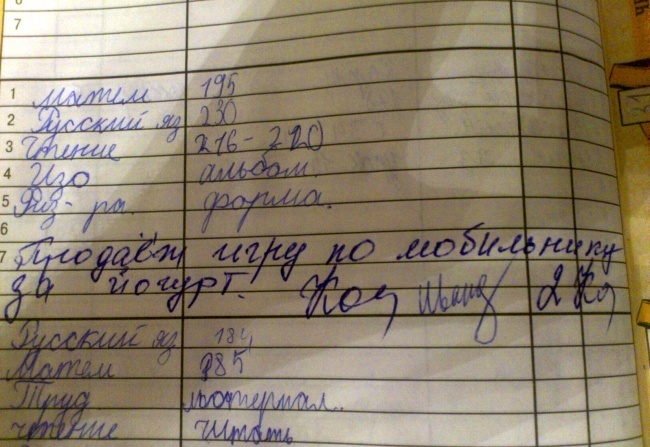 6
7
1 матем 195
2 Русский яз 230
3 Чтение 216-220
4 Изо альбом.
5 Физ-ра. форма.
6
7 Продаёт игру по мобильнику
за йогурт.
Русский яз 184
Матем 985
Труд материал..
чтение читать